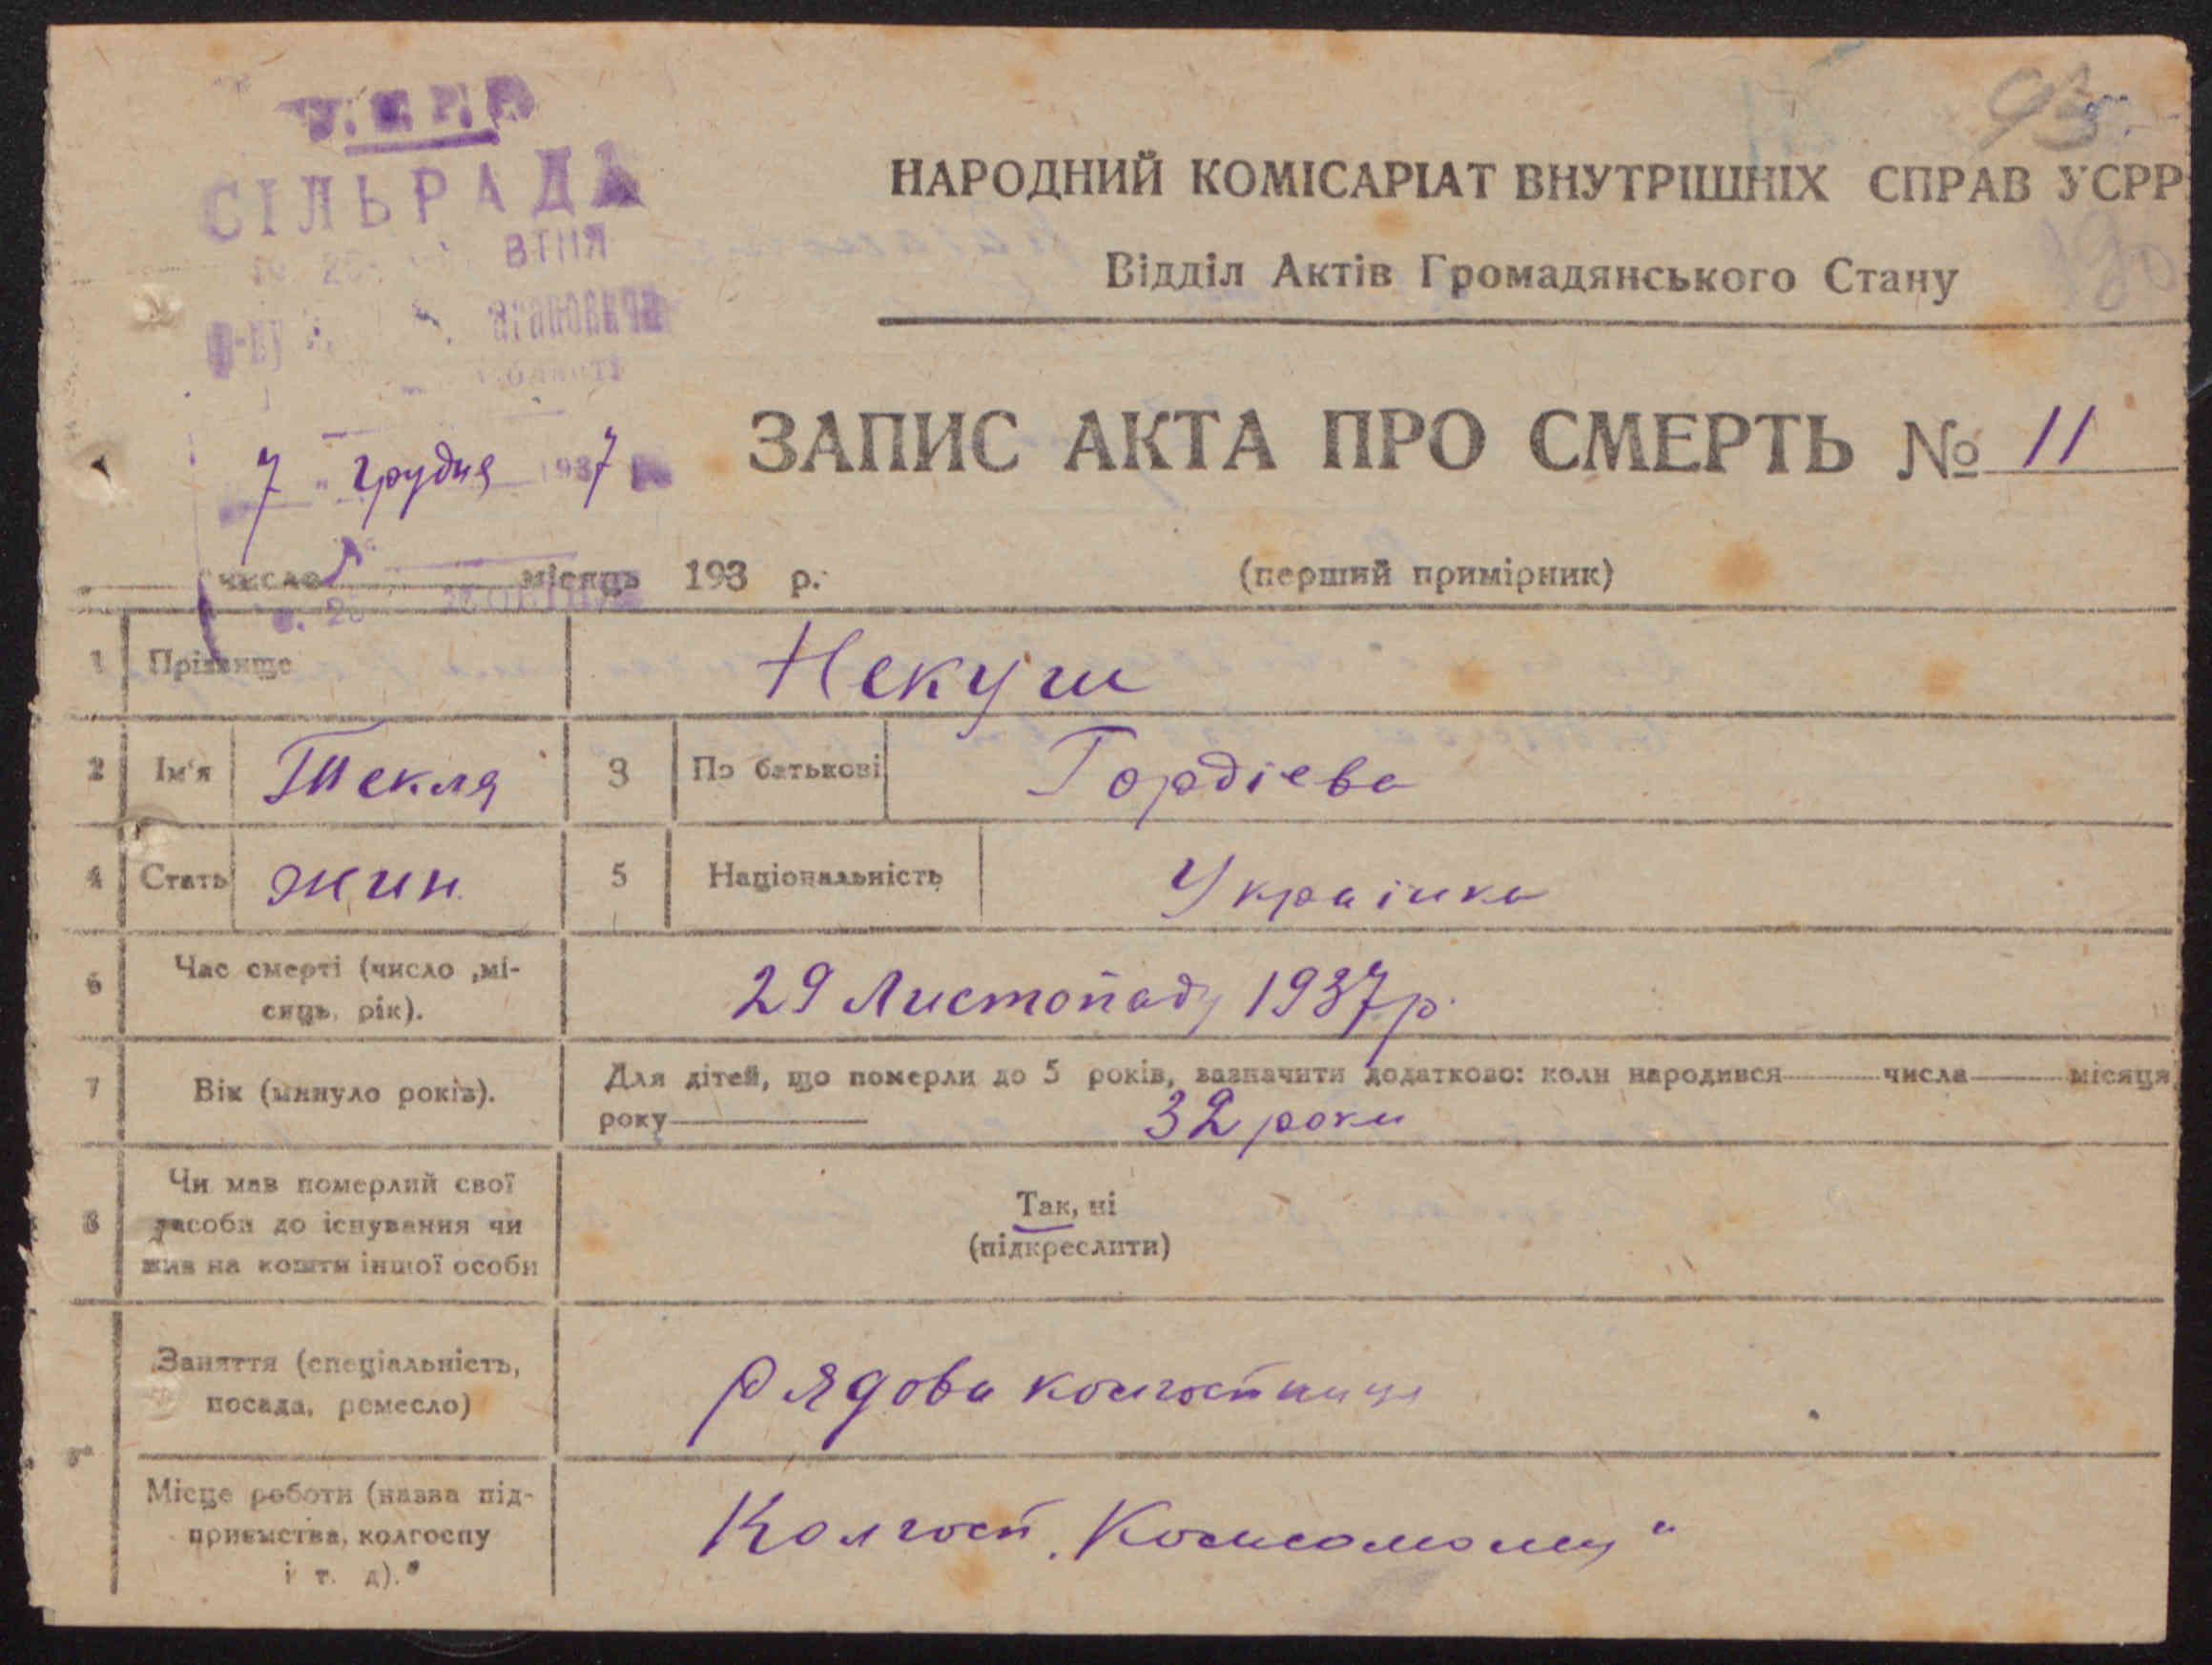 У.С.Р.Р.
СІЛЬРАДА
НАРОДНИЙ КОМІСАРІАТ ВНУТРІШНІХ СПРАВ УСРР
Відділ Актів Громадянського Стану
7 грудня 1937
ЗАПИС АКТА ПРО СМЕРТЬ № 11
число місяць 193 р.
(перший примірник)
1 Прізвище Некуш
2 Ім'я Текля 3 По батькові Гордієва
4 Стать жин. 5 Національність Українка
6 Час смерті (число ,мі-
сяць, рік).
29 Листопаду 1937 р.
7 Вік (минуло років).
Для дітей, що померли до 5 років, зазначити додатково: коли народився числа місяця
року 32 роки
8 Чи мав померлий свої
засоби до існування чи
жив на кошти іншої особи
Так, ні
(підкреслити)
Заняття (спеціальність,
посада, ремесло)
рядова колгоспниця
Місце роботи (назва під-
приємства, колгоспу
і т. д).
Колгосп "Комсомолець"